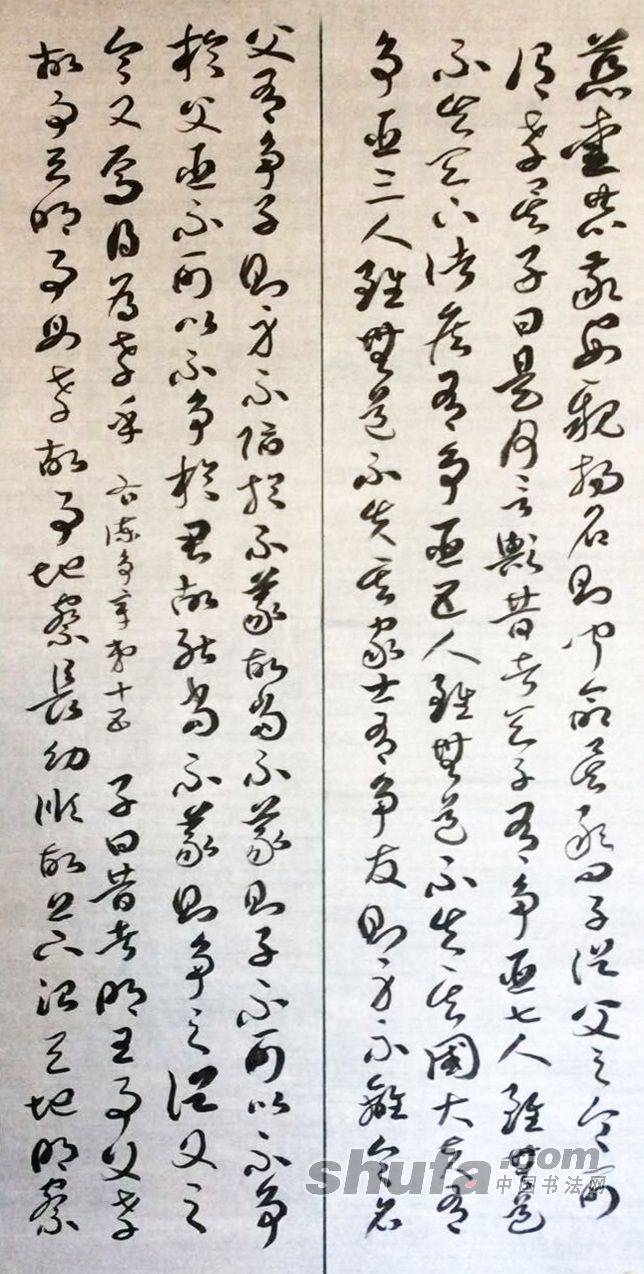 慈愛恭敬安親揚名則聞命矣敢問子從父之令可
謂孝矣子曰是何言歟昔者天子有爭臣七人雖無道
不失天下諸侯有爭臣五人雖無道不失其國大夫有
爭臣三人雖無道不失其家士有爭友則身不離令名
父有爭子則身不陷於不義故當不義則子不可以不爭
於父臣不可以不爭於君故當不義則爭之從父之
令又焉得為孝乎 右諫爭章第十五 子曰昔者明王事父孝
故事天明事母孝故事地察長幼順故上下治天地明察
shufa.com
中国书法网